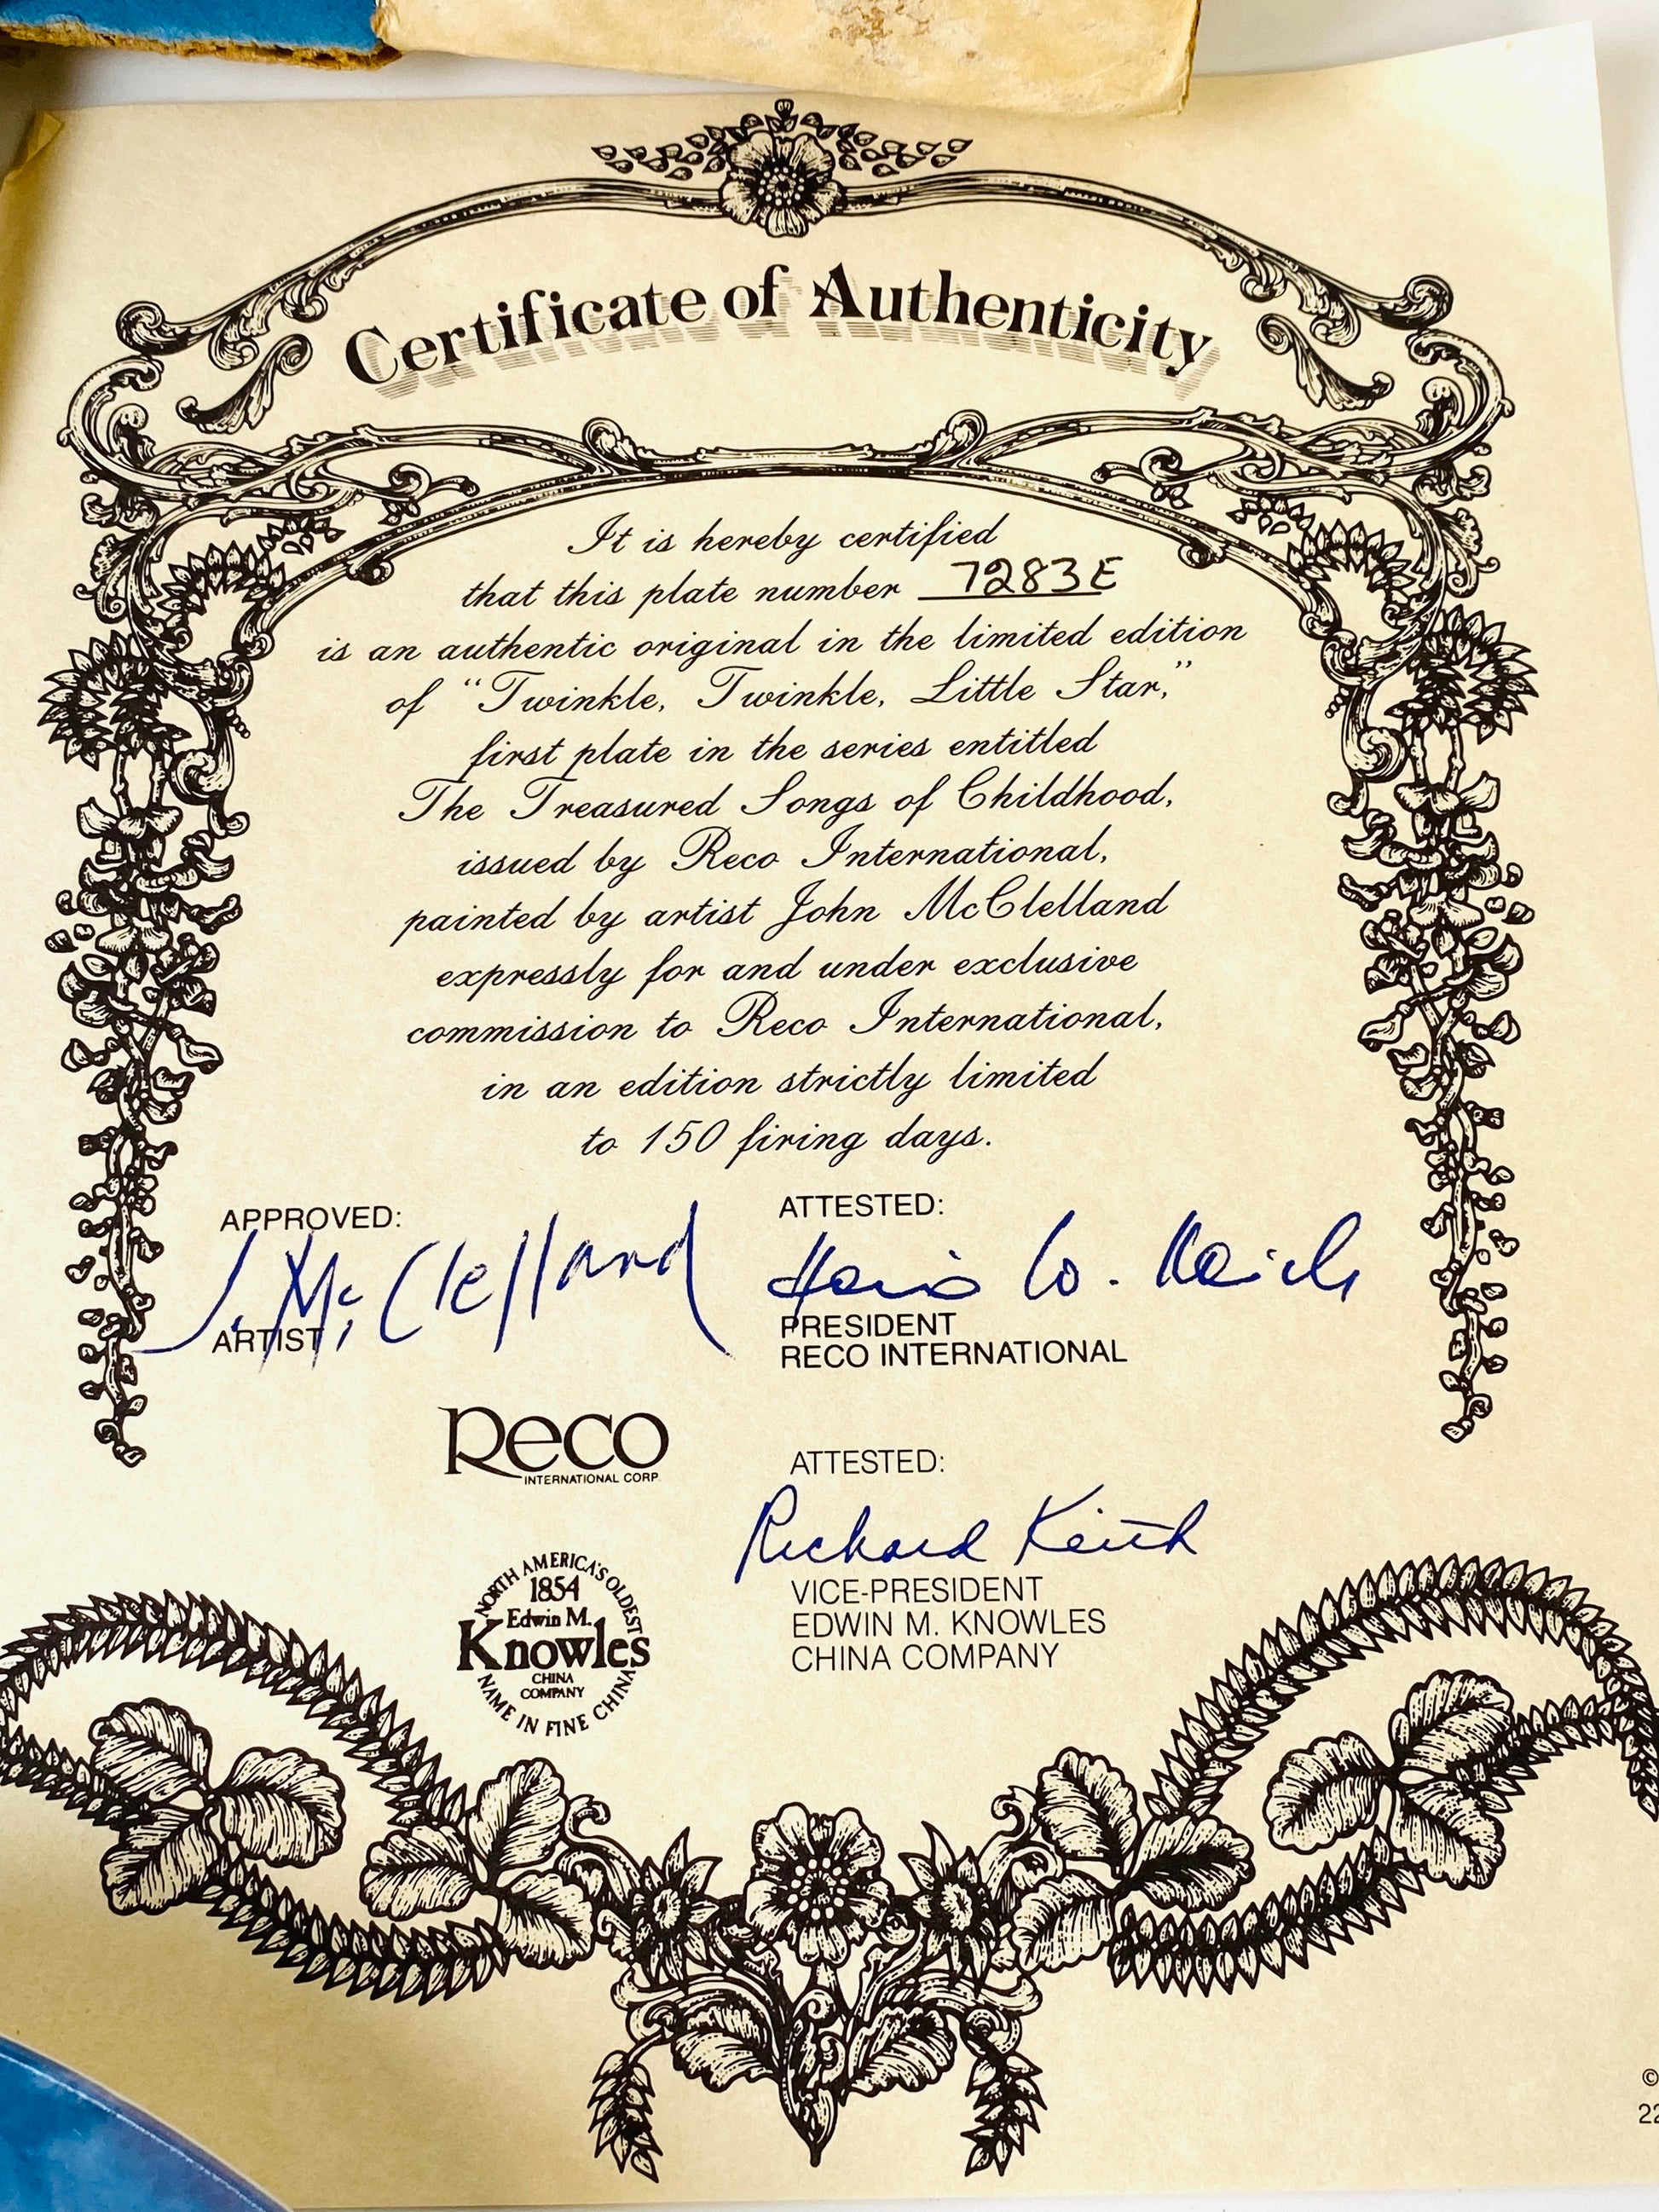 Certificate of Authenticity
It is hereby certified
that this plate number 7283E
is an authentic original in the limited edition
of “Twinkle, Twinkle, Little Star,”
first plate in the series entitled
The Treasured Songs of Childhood,
issued by Reco International,
painted by artist John McClelland
expressly for and under exclusive
commission to Reco International,
in an edition strictly limited
to 150 firing days.
APPROVED:
J. McClelland
ARTIST
ATTESTED:
PRESIDENT
RECO INTERNATIONAL
Reco
INTERNATIONAL CORP.
ATTESTED:
Richard Keith
VICE-PRESIDENT
EDWIN M. KNOWLES
CHINA COMPANY
NORTH AMERICA'S OLDEST
1854
Edwin M.
Knowles
CHINA
COMPANY
NAME IN FINE CHINA
©
22